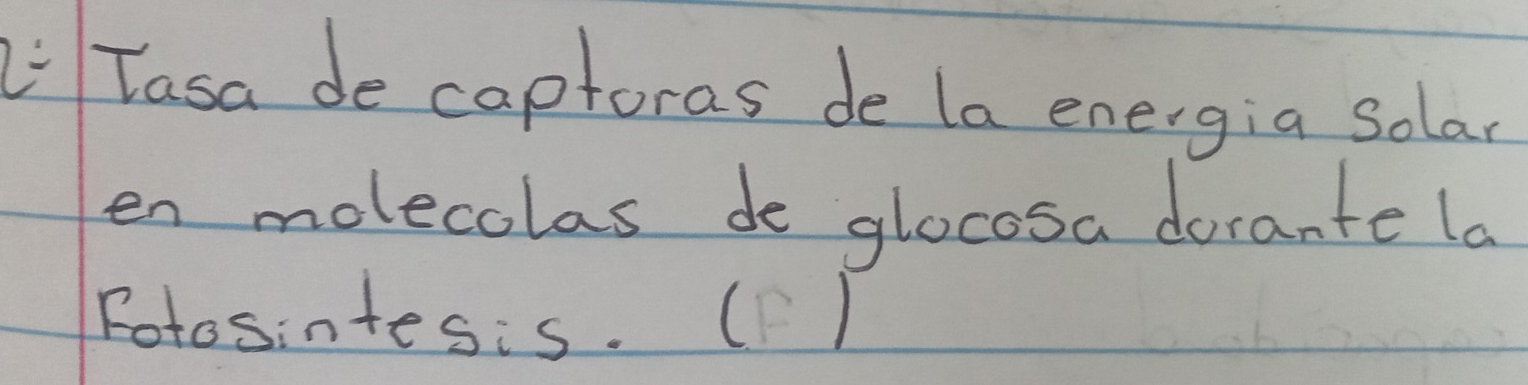 2- Tasa de capturas de la energia Solar
en moleculas de glucosa durante la
Fotosintesis. (F)